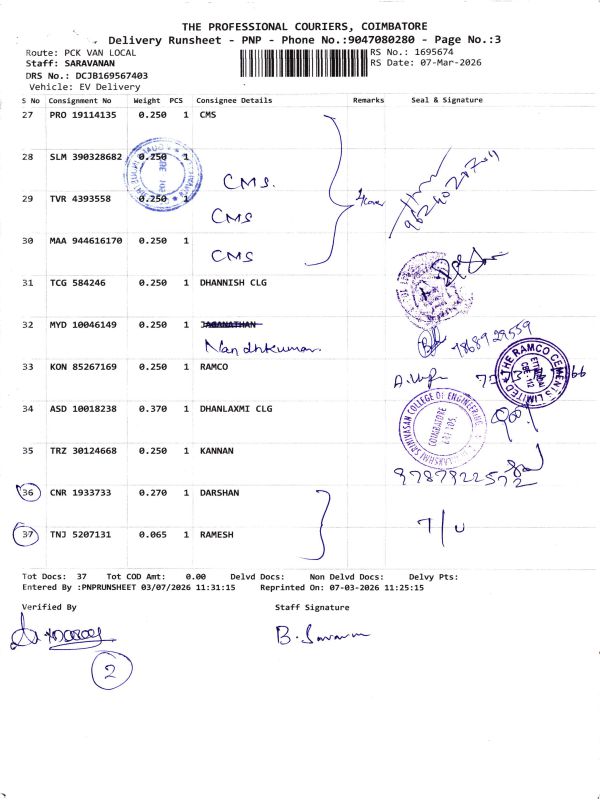 THE PROFESSIONAL COURIERS, COIMBATORE
Delivery Runsheet - PNP - Phone No.:9047080280 - Page No.:3
Route: PCK VAN LOCAL
RS No.: 1695674
Staff: SARAVANAN
RS Date: 07-Mar-2026
DRS No.: DCJB169567403
Vehicle: EV Delivery
S No Consignment No Weight PCS Consignee Details Remarks Seal & Signature
27 PRO 19114135 0.250 1 CMS
28 SLM 390328682 0.250 1
CMS.
29 TVR 4393558 0.250 1
CMS
30 MAA 944616170 0.250 1
CMS
31 TCG 584246 0.250 1 DHANNISH CLG
32 MYD 10046149 0.250 1 JAGANATHAN
Nandhkumar
9868929559
33 KON 85267169 0.250 1 RAMCO
THE RAMCO CEMENTS LIMITED
34 ASD 10018238 0.370 1 DHANLAXMI CLG
SRINIVASAN COLLEGE OF ENGINEERING
COIMBATORE
35 TRZ 30124668 0.250 1 KANNAN
9787922572
36 CNR 1933733 0.270 1 DARSHAN
37 TNJ 5207131 0.065 1 RAMESH
7/U
Tot Docs: 37 Tot COD Amt: 0.00 Delvd Docs: Non Delvd Docs: Delvy Pts:
Entered By :PNPRUNSHEET 03/07/2026 11:31:15 Reprinted On: 07-03-2026 11:25:15
Verified By Staff Signature
B. Saravan
2